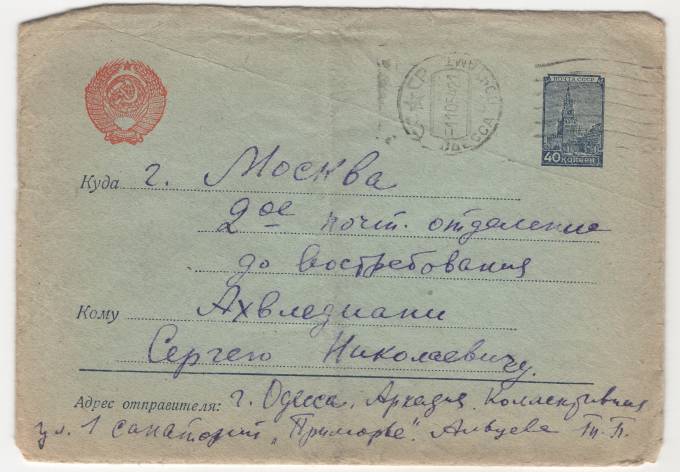 ПОЧТА СССР
40 КОПЕЕК
ОДЕССА
Куда г. Москва
2ое почт. отделение
до востребования
Кому Ахвледиани
Сергею Николаевичу.
Адрес отправителя: г. Одесса, Аркадия, Коллективная
ул. 1 санаторий „Приморье". Альцева